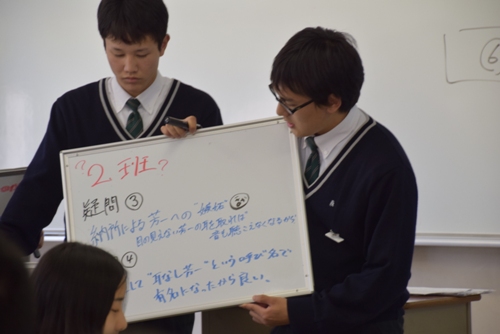 ?2班?
疑問③
納所による芳一への"嫉妬"
目の見えない芳一の耳を取れば
音も聴こえなくなるから
④
して"耳なし芳一"という呼び名で
有名になったから良い。
6